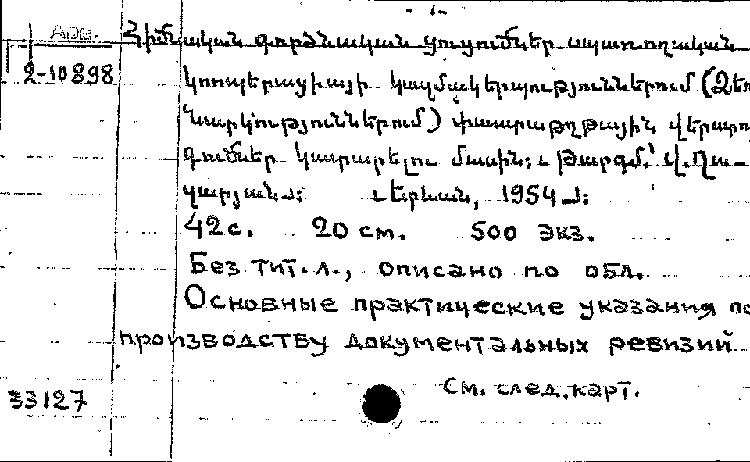 Арм.
Հիմնական գործնական ցուցումներ սպառողական
2-10898
կոոպերացիայի կազմակերպություններում (Ձեռ
նարկություններում) փաստաթղթային վերստու
գումներ կատարելու մասին։
Թարգմ.՝ Վ. Ղա-
զարյան։ Երևան, 1954։
42 с. 20 см. 500 экз.
Без тит. л., описано по обл.
Основные практические указания по
производству документальных ревизий
См. след. карт.
33127